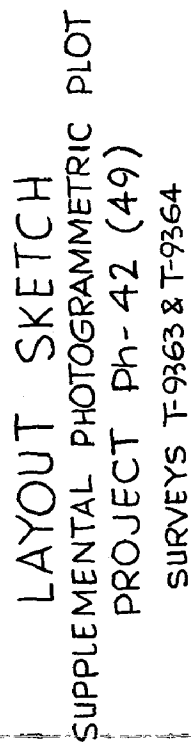 LAYOUT SKETCH
SUPPLEMENTAL PHOTOGRAMMETRIC PLOT
PROJECT Ph-42 (49)
SURVEYS T-9363 & T-9364